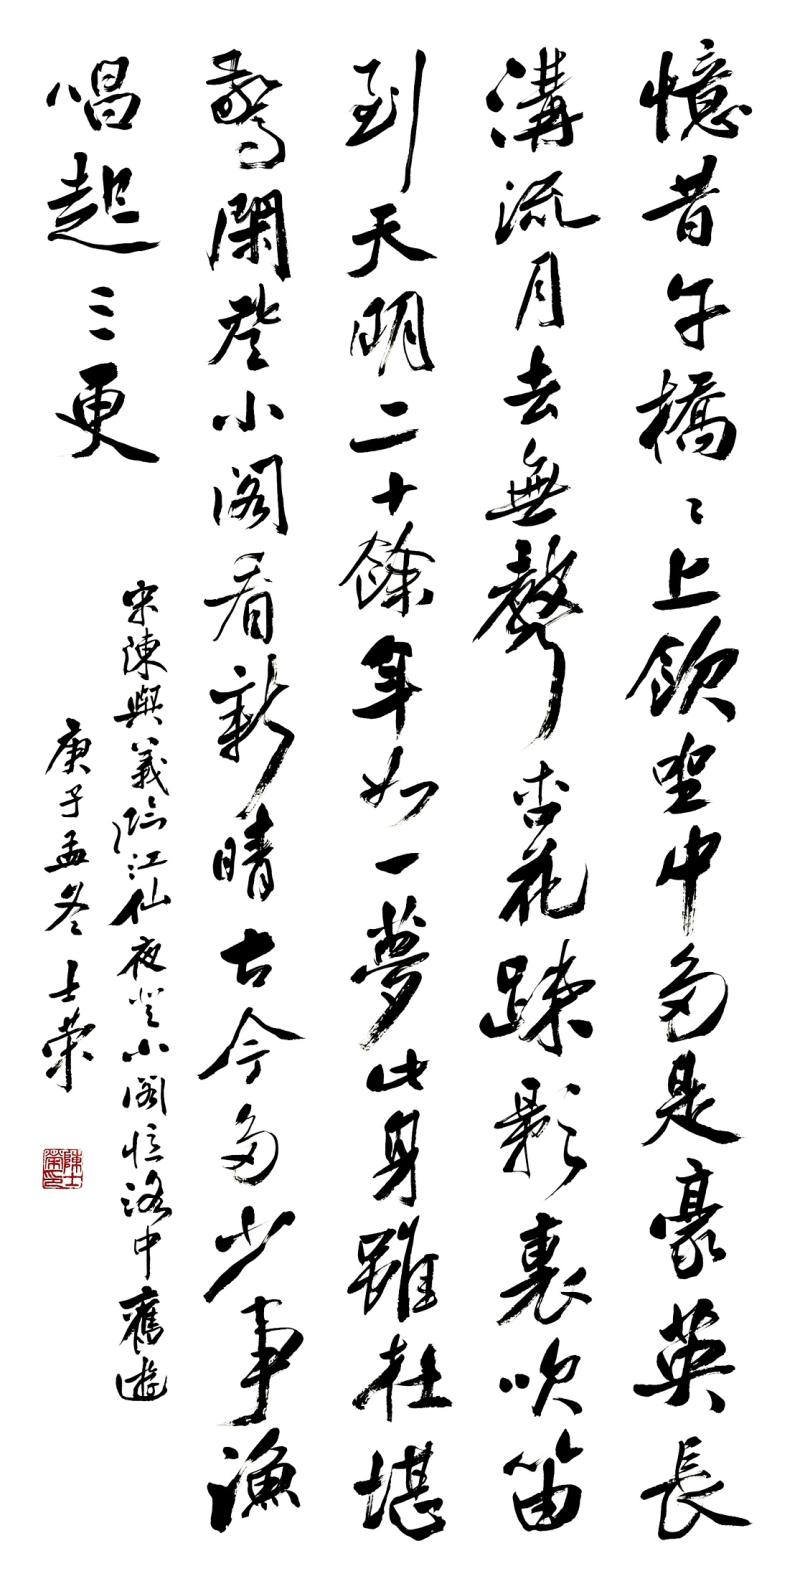 憶昔午橋〻上飲坐中多是豪英長
溝流月去無聲杏花踈影裏吹笛
到天明二十餘年如一夢此身雖在堪
驚閑登小閣看新晴古今多少事漁
唱起三更
宋陳與義臨江仙夜登小閣憶洛中舊遊
庚子孟冬士榮
陳士榮印